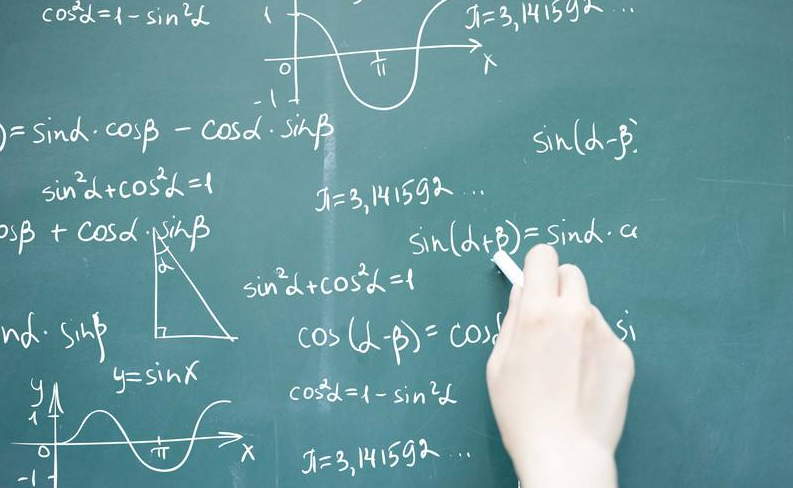 cos²α=1-sin²α
π=3,141592...
1
0
π
x
-1
)=sinα·cosβ - cosα·sinβ
sin(α-β)
sin²α+cos²α=1
π=3,141592...
osβ + cosα·sinβ
sin(α+β)=sinα·c
α
sin²α+cos²α=1
nα·sinβ
cos(α-β)=cosα si
y=sinx
cos²α=1-sin²α
y
1
0
π
x
-1
π=3,141592...